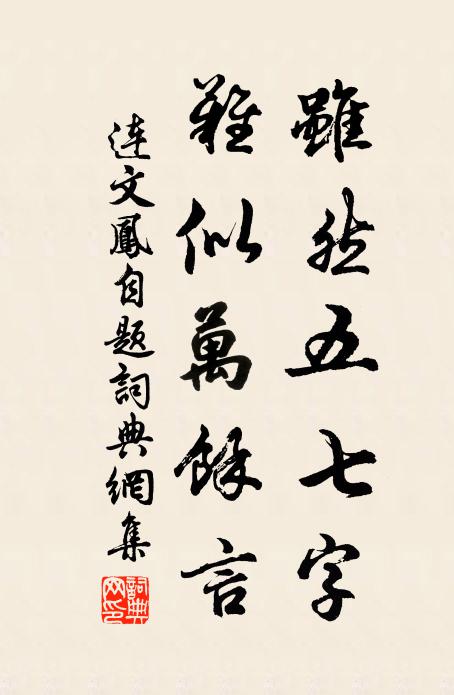 雖然五七字
難似萬餘言
連文鳳自題詞典網集
詞典網印